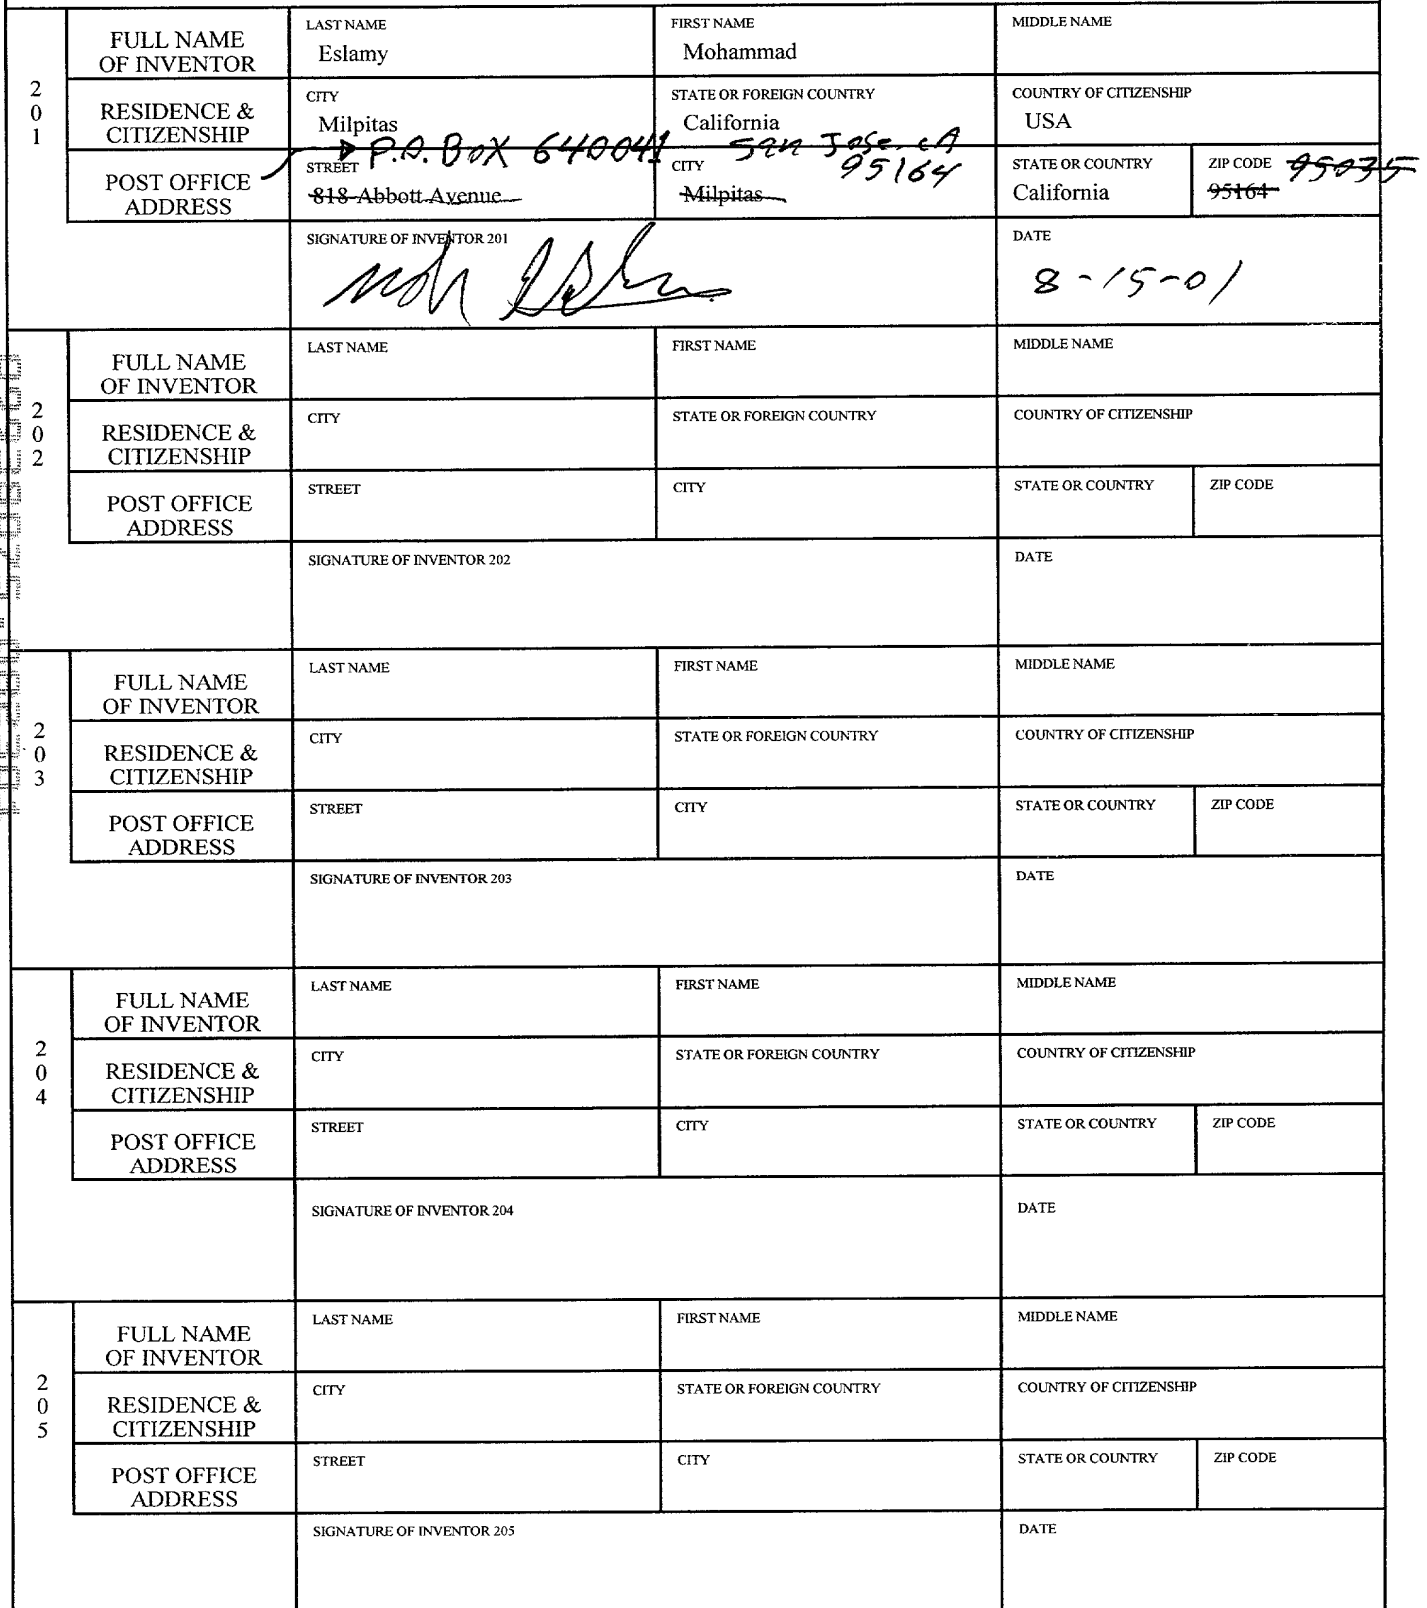 201
FULL NAME OF INVENTOR
LAST NAME
Eslamy
FIRST NAME
Mohammad
MIDDLE NAME
RESIDENCE & CITIZENSHIP
CITY
Milpitas
STATE OR FOREIGN COUNTRY
California
COUNTRY OF CITIZENSHIP
USA
POST OFFICE ADDRESS
P.O. BOX 640041 San Jose, CA
95164
STREET
818 Abbott Avenue
CITY
Milpitas
STATE OR COUNTRY
California
ZIP CODE
95164
95035
SIGNATURE OF INVENTOR 201
DATE
8-15-01
202
FULL NAME OF INVENTOR
LAST NAME
FIRST NAME
MIDDLE NAME
RESIDENCE & CITIZENSHIP
CITY
STATE OR FOREIGN COUNTRY
COUNTRY OF CITIZENSHIP
POST OFFICE ADDRESS
STREET
CITY
STATE OR COUNTRY
ZIP CODE
SIGNATURE OF INVENTOR 202
DATE
203
FULL NAME OF INVENTOR
LAST NAME
FIRST NAME
MIDDLE NAME
RESIDENCE & CITIZENSHIP
CITY
STATE OR FOREIGN COUNTRY
COUNTRY OF CITIZENSHIP
POST OFFICE ADDRESS
STREET
CITY
STATE OR COUNTRY
ZIP CODE
SIGNATURE OF INVENTOR 203
DATE
204
FULL NAME OF INVENTOR
LAST NAME
FIRST NAME
MIDDLE NAME
RESIDENCE & CITIZENSHIP
CITY
STATE OR FOREIGN COUNTRY
COUNTRY OF CITIZENSHIP
POST OFFICE ADDRESS
STREET
CITY
STATE OR COUNTRY
ZIP CODE
SIGNATURE OF INVENTOR 204
DATE
205
FULL NAME OF INVENTOR
LAST NAME
FIRST NAME
MIDDLE NAME
RESIDENCE & CITIZENSHIP
CITY
STATE OR FOREIGN COUNTRY
COUNTRY OF CITIZENSHIP
POST OFFICE ADDRESS
STREET
CITY
STATE OR COUNTRY
ZIP CODE
SIGNATURE OF INVENTOR 205
DATE